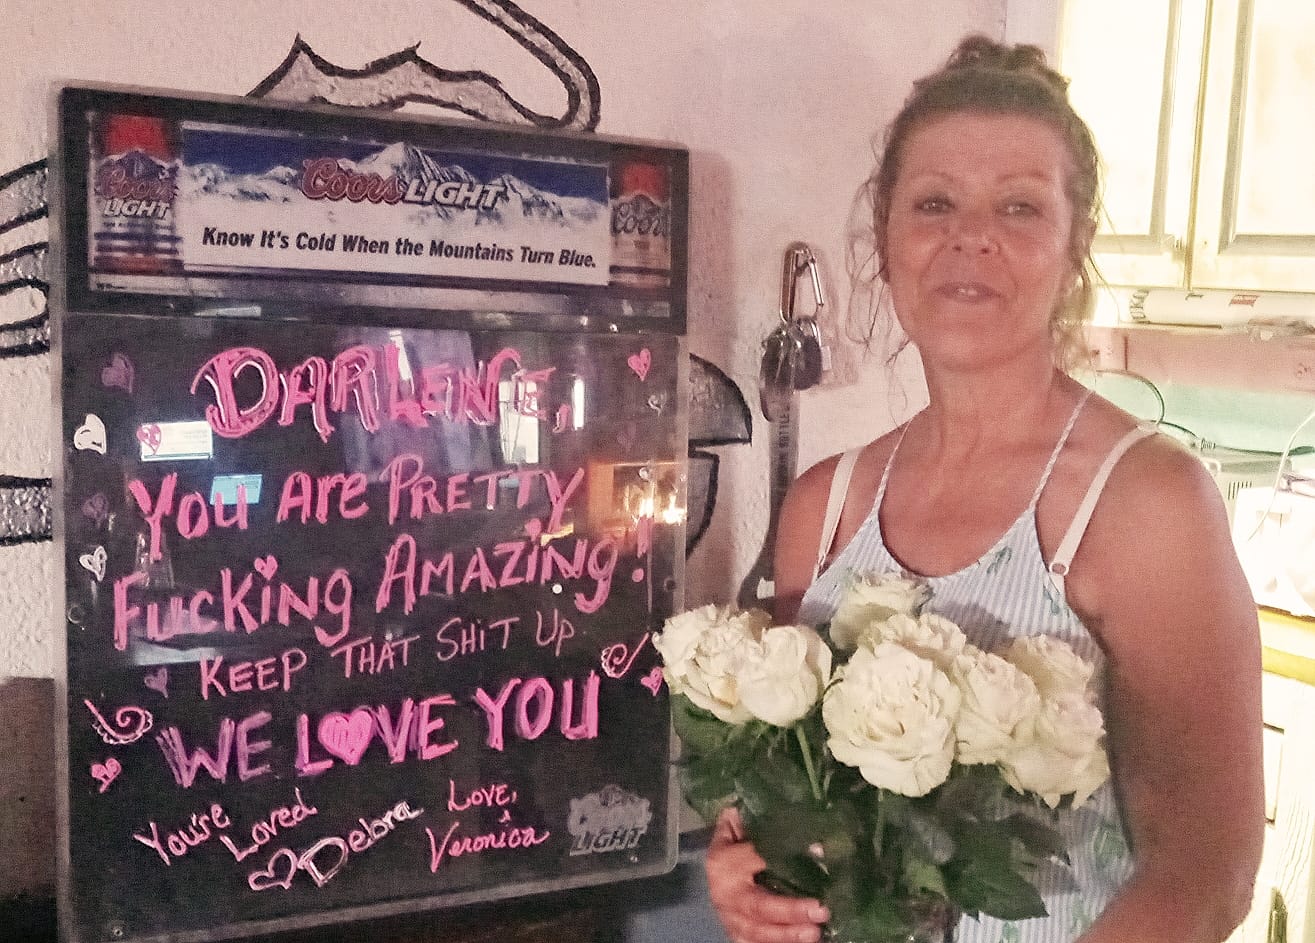 Coors LIGHT
Coors LIGHT
Coors
Know It's Cold When the Mountains Turn Blue.
DARLENE,
You Are PRETTY
Fucking AMAZiNg!
KEEP THAT SHiT UP
WE LOVE YOU
You're Loved
Debra
Love,
Veronica
Coors LIGHT
BOTTLE